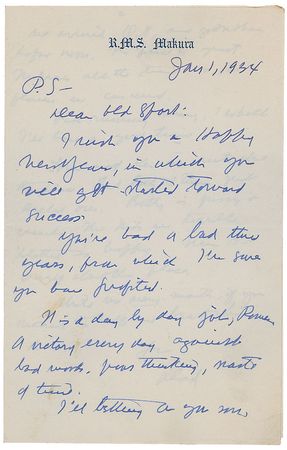 R.M.S. Makura
Jan 1, 1934
P.S—
Dear Old Sport:
I wish you a Happy
New Years, in which you
will get started toward
success
You've had a bad three
years, from which I'm sure
you have profited.
It is a day by day job,
A victory every day against
bad words, poor thinking, waste
of time.
I'll betting on you son,